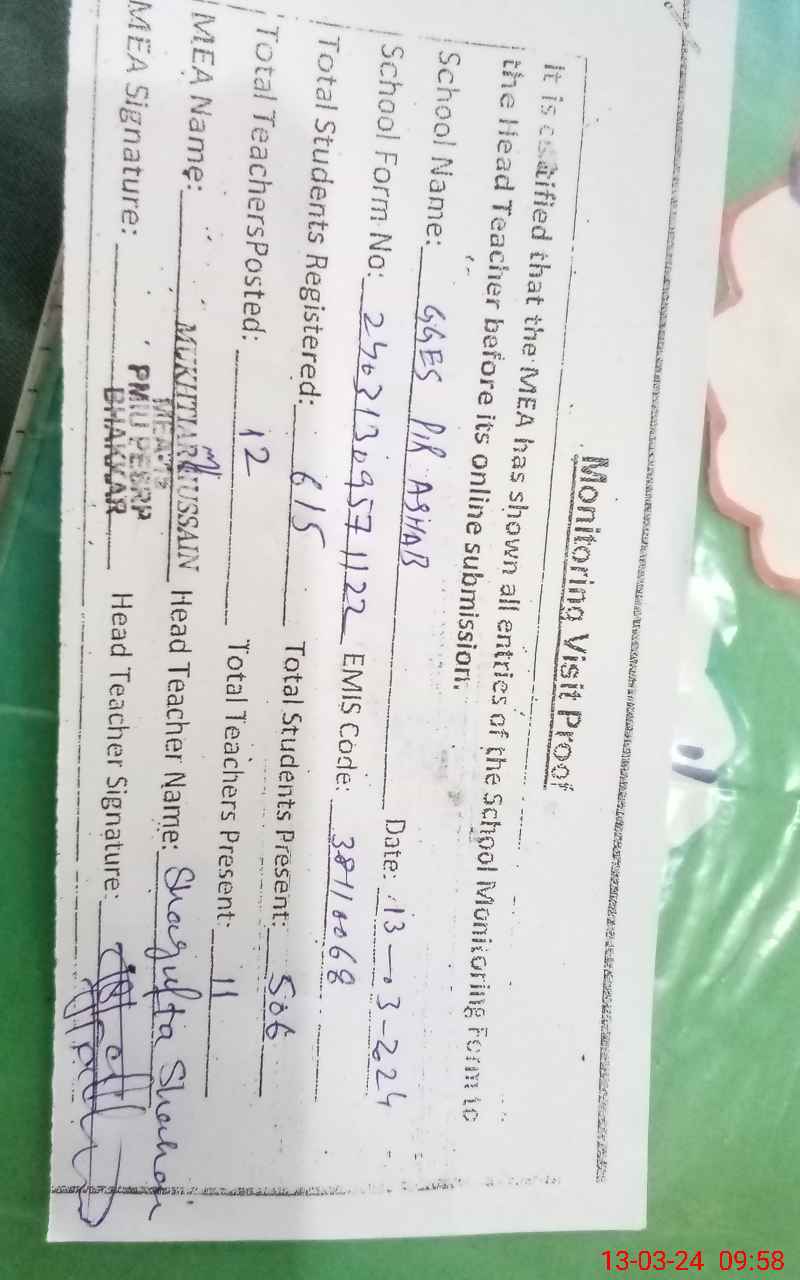 Monitoring Visit Proof
It is certified that the MEA has shown all entries of the School Monitoring Form to
the Head Teacher before its online submission.
School Name: GGES PIR ASHAB Date: 13-03-224
School Form No: 24031309571122 EMIS Code: 38110068
Total Students Registered: 615 Total Students Present: 506
Total TeachersPosted: 12 Total Teachers Present: 11
MEA Name: MUKHTIAR HUSSAIN Head Teacher Name: Shagufta Shaheen
PMIU PESRP
BHAKKAR
MEA Signature: Head Teacher Signature:
13-03-24 09:58